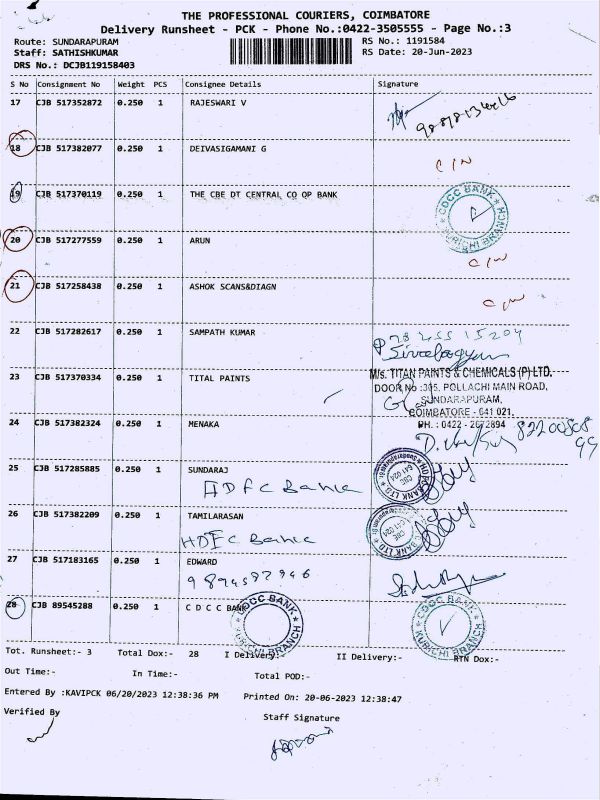 THE PROFESSIONAL COURIERS, COIMBATORE
Delivery Runsheet - PCK - Phone No.:0422-3505555 - Page No.:3
Route: SUNDARAPURAM RS No.: 1191584
Staff: SATHISHKUMAR RS Date: 20-Jun-2023
DRS No.: DCJB119158403
S No Consignment No Weight PCS Consignee Details Signature
17 CJB 517352872 0.250 1 RAJESWARI V
18 CJB 517382077 0.250 1 DEIVASIGAMANI G C/N
19 CJB 517370119 0.250 1 THE CBE DT CENTRAL CO OP BANK
CDCC BANK KURICHI BRANCH
20 CJB 517277559 0.250 1 ARUN C/N
21 CJB 517258438 0.250 1 ASHOK SCANS&DIAGN C/N
22 CJB 517282617 0.250 1 SAMPATH KUMAR
23 CJB 517370334 0.250 1 TITAL PAINTS
M/s. TITAN PAINTS & CHEMICALS (P) LTD.
DOOR No :395, POLLACHI MAIN ROAD,
SUNDARAPURAM,
COIMBATORE - 641 021.
PH. : 0422 - 2672894
24 CJB 517382324 0.250 1 MENAKA
25 CJB 517285885 0.250 1 SUNDARAJ
HDFC Bank
HDFC BANK LTD CBE 641 024
26 CJB 517382209 0.250 1 TAMILARASAN
HDFC Bank
CBE 641 024
27 CJB 517183165 0.250 1 EDWARD
9894587946
28 CJB 89545288 0.250 1 C D C C BANK
CDCC BANK KURICHI BRANCH
CDCC BANK KURICHI BRANCH
Tot. Runsheet:- 3 Total Dox:- 28 I Delivery:- II Delivery:- RTN Dox:-
Out Time:- In Time:- Total POD:-
Entered By :KAVIPCK 06/20/2023 12:38:36 PM Printed On: 20-06-2023 12:38:47
Verified By Staff Signature